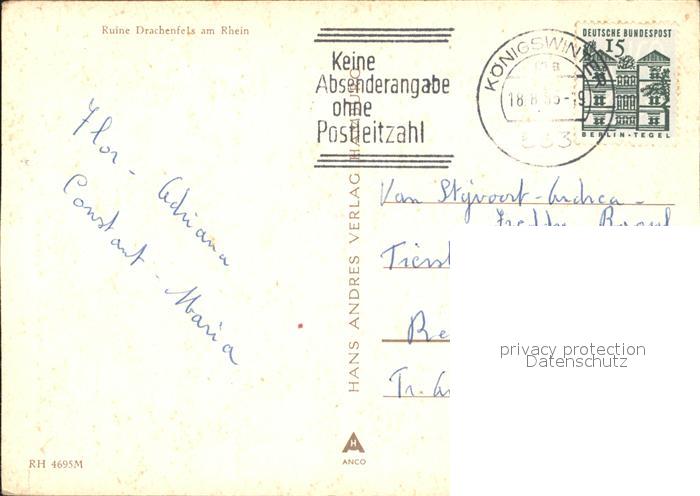 Ruine Drachenfels am Rhein
Keine
Absenderangabe
ohne
Postleitzahl
KÖNIGSWINTER
18.8.65-19
533
DEUTSCHE BUNDESPOST
15
BERLIN-TEGEL
Flor - Adriana
Constant - Maria
HANS ANDRES VERLAG HAMBURG
Van Stijvoort-Andrea -
Freddy
Tienst
Re
privacy protection
Datenschutz
H
ANCO
RH 4695M